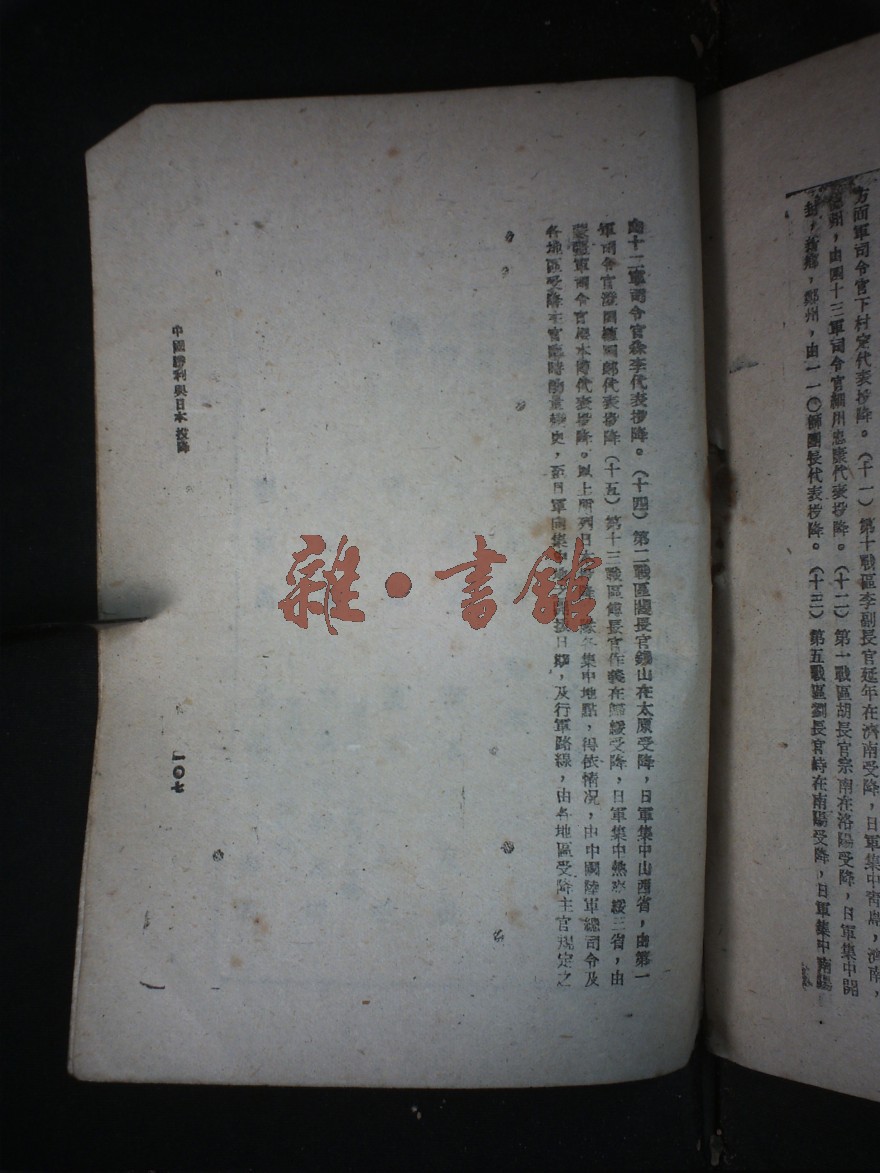 方面軍司令官下村定代表投降。(十一)第十戰區李副長官延年在濟南受降,日軍集中青島,濟南,
州,由四十三軍司令官細川忠康代表投降。(十二)第一戰區胡長官宗南在洛陽受降,日軍集中開
封,新鄉,鄭州,由一一〇師團長代表投降。(十三)第五戰區劉長官峙在南陽受降,日軍集中南陽
由十二軍司令官森李代表投降。(十四)第二戰區閻長官錫山在太原受降,日軍集中山西省,由第一
軍司令官澄田𧶽四郎代表投降(十五)第十三戰區傅長官作義在歸綏受降,日軍集中熱察綏三省,由
蒙疆軍司令官根本博代表投降。以上所列日本投降部隊各集中地點,得依情況,由中國陸軍總司令及
各地區受降主官臨時酌量變更,至日軍向集中日期,及行軍路線,由各地區受降主官規定之
中國勝利與日本投降
一〇七
雜·書館